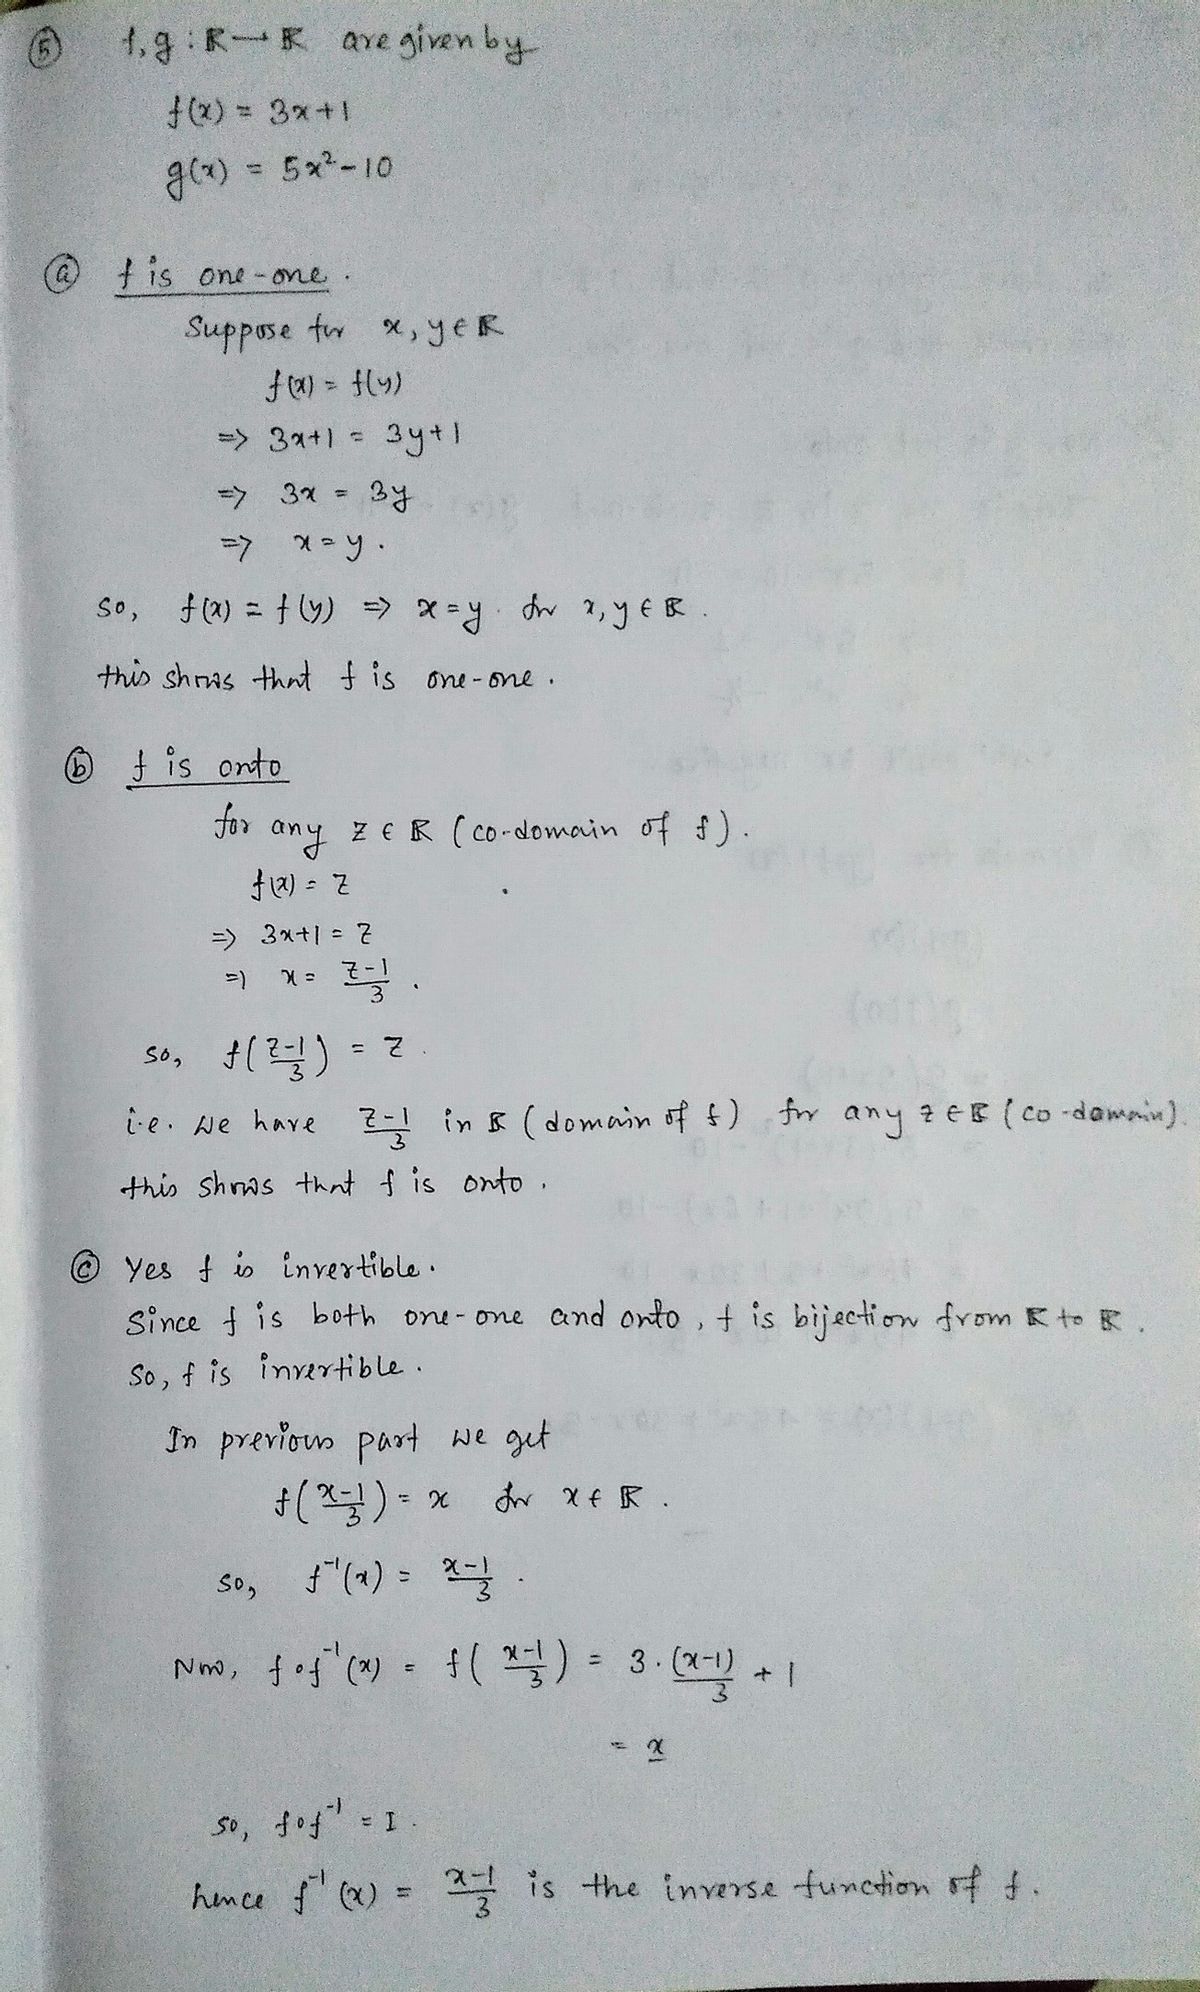 ⑤ f, g : ℝ → ℝ are given by
f(x) = 3x+1
g(x) = 5x²-10
ⓐ f is one-one.
Suppose for x, y ∈ ℝ
f(x) = f(y)
=> 3x+1 = 3y+1
=> 3x = 3y
=> x = y.
so, f(x) = f(y) => x = y. for x, y ∈ ℝ.
this shows that f is one-one.
ⓑ f is onto
for any z ∈ ℝ (co-domain of f).
f(x) = z
=> 3x+1 = z
=> x = (z-1)/3.
so, f((z-1)/3) = z.
i.e. we have (z-1)/3 in ℝ (domain of f) for any z ∈ ℝ (co-domain).
this shows that f is onto.
ⓒ Yes f is invertible.
Since f is both one-one and onto, f is bijection from ℝ to ℝ.
so, f is invertible.
In previous part we get
f((x-1)/3) = x for x ∈ ℝ.
so, f⁻¹(x) = (x-1)/3.
Now, f∘f⁻¹(x) = f((x-1)/3) = 3·(x-1)/3 + 1
= x
so, f∘f⁻¹ = I.
hence f⁻¹(x) = (x-1)/3 is the inverse function of f.